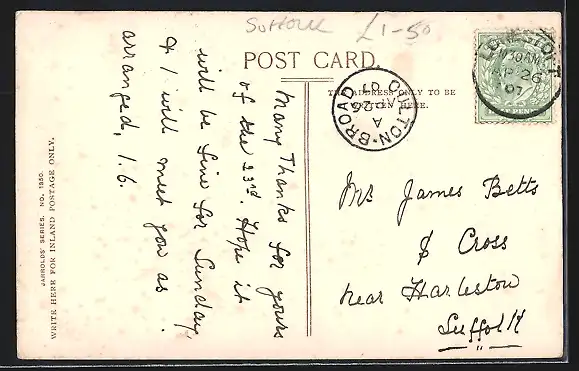 Suffolk £1-50
POST CARD.
THE ADDRESS ONLY TO BE
WRITTEN HERE.
LOWESTOFT
AP 26
07
OULTON-BROAD
A
AP 26
07
Many Thanks for yours
of the 23rd. Hope it
will be fine for Sunday,
& I will meet you as
arranged, 1.6.
Mrs James Betts
Cross
near Harleston
Suffolk
JARROLDS' SERIES. NO. 1850.
WRITE HERE FOR INLAND POSTAGE ONLY.